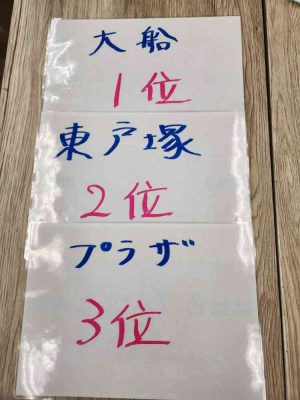 大船
1位
東戸塚
2位
プラザ
3位